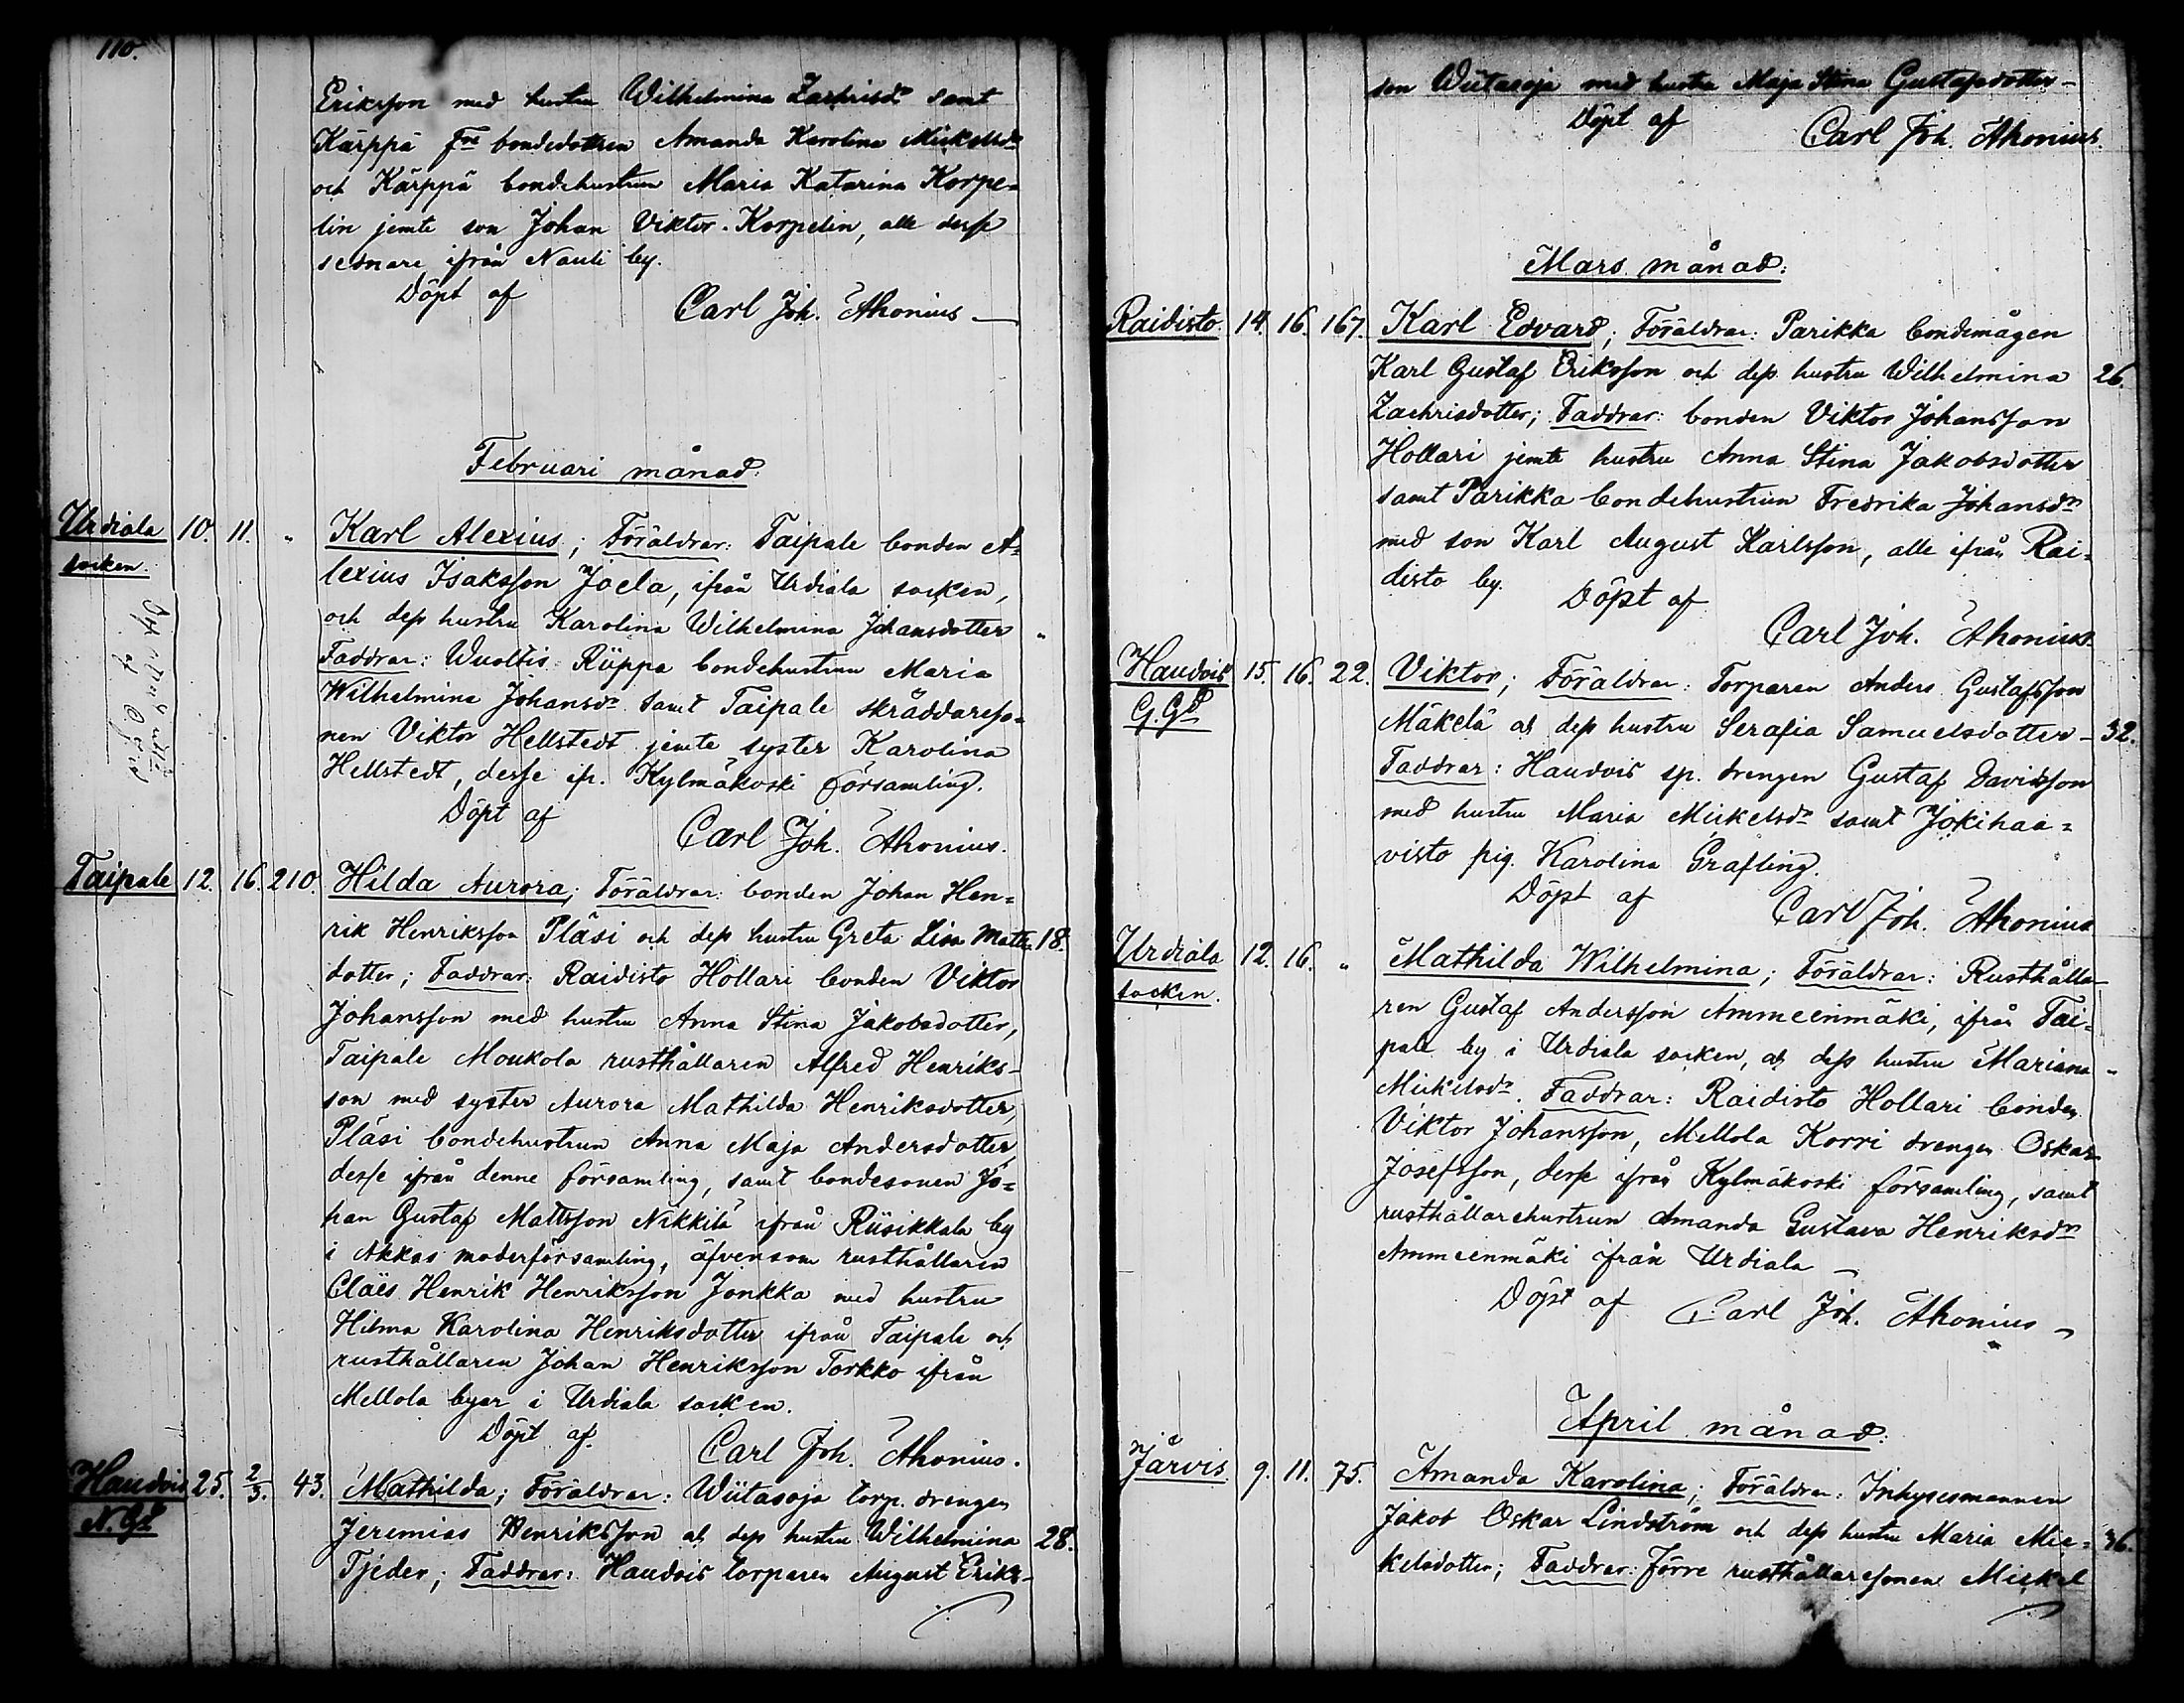 110.
Eriksson med hustru Wilhelmina Zachrisdr samt
Kärppä fre bondedottren Amanda Karolina Mickelsdr
och Kärppä bondehustrun Maria Katarina Korpe=
lin jemte son Johan Viktor Korpelin, alle desse
sednare ifrån Nauli by.
Döpt af
Carl Joh. Ahonius
Februari månad:
Urdiala 10. 11. " Karl Alexius; Föräldrar: Taipale bonden A=
socken.
lexius Isaksson Joela, ifrån Urdiala socken,
och dess hustru Karolina Wilhelmina Johansdotter "
Faddrar: Wuoltis Rüppa bondehustrun Maria
Wilhelmina Johansdr samt Taipale skräddareso=
nen Viktor Hellstedt jemte syster Karolina
Hellstedt, desse ifr. Kylmäkoski församling.
Döpt af
Carl Joh. Ahonius.
Taipale 12. 16. 210. Hilda Aurora; Föräldrar: bonden Johan Hen=
rik Henriksson Pläsi och dess hustru Greta Lisa Matts 18.
dotter; Faddrar: Raidisto Hollari bonden Viktor
Johansson med hustru Anna Stina Jakobsdotter,
Taipale Moukola rusthållaren Alfred Henriks-
son med syster Aurora Mathilda Henriksdotter,
Pläsi bondehustrun Anna Maja Andersdotter,
desse ifrån denne församling, samt bondesonen Jo=
han Gustaf Mattsson Nikkilä ifrån Riisikkala by
i Akkas moderförsamling, äfvensom rusthållaren
Claës Henrik Henriksson Jonkka med hustru
Hilma Karolina Henriksdotter ifrån Taipale och
rusthållaren Johan Henriksson Torkko ifrån
Mellola byar i Urdiala socken.
Döpt af
Carl Joh. Ahonius.
Haudois 25. 2/3. 43. Mathilda; Föräldrar: Wiitasoja torp. drengen
N. Gd
Jeremias Henriksson och dess hustru Wilhelmina 28.
Tjeder; Faddrar: Haudois torparen August Eriks-
son Wiitasoja med hustru Maja Stina Gustafsdotter-
Döpt af
Carl Joh. Ahonius.
Mars månad:
Raidisto. 14. 16. 167. Karl Edvard; Föräldrar: Parikka bondemågen
Karl Gustaf Eriksson och dess hustru Wilhelmina 26.
Zachrisdotter; Faddrar: bonden Viktor Johansson
Hollari jemte hustru Anna Stina Jakobsdotter
samt Parikka bondehustrun Fredrika Johansdr
med son Karl August Karlsson, alle ifrån Rai=
disto by.
Döpt af
Carl Joh. Ahonius.
Haudois 15. 16. 22. Viktor; Föräldrar: Torparen Anders Gustafsson
G. Gd
Mäkelä och dess hustru Serafia Samuelsdotter- 32.
Faddrar: Haudois sp. drengen Gustaf Davidsson
med hustru Maria Mickelsdr samt Jokihaa=
visto pig. Karolina Grafling.
Döpt af
Carl Joh. Ahonius
Urdiala 12. 16. " Mathilda Wilhelmina; Föräldrar: Rusthålla-
socken.
ren Gustaf Andersson Ammeenmäki, ifrån Tai=
pale by i Urdiala socken, och dess hustru Mariana "
Mickelsdr. Faddrar: Raidisto Hollari bonden
Viktor Johansson, Mellola Korri drengen Oskar
Josefsson, desse ifrån Kylmäkoski församling, samt
rusthållarehustrun Amanda Gustava Henriksdr
Ammeenmäki ifrån Urdiala
Döpt af Carl Joh. Ahonius
April månad:
Järvis 9. 11. 75. Amanda Karolina; Föräldrar: Inhysesmannen
Jakob Oskar Lindström och dess hustru Maria Mic= 36.
kelsdotter; Faddrar: Jörre rusthållaresonen Mickel